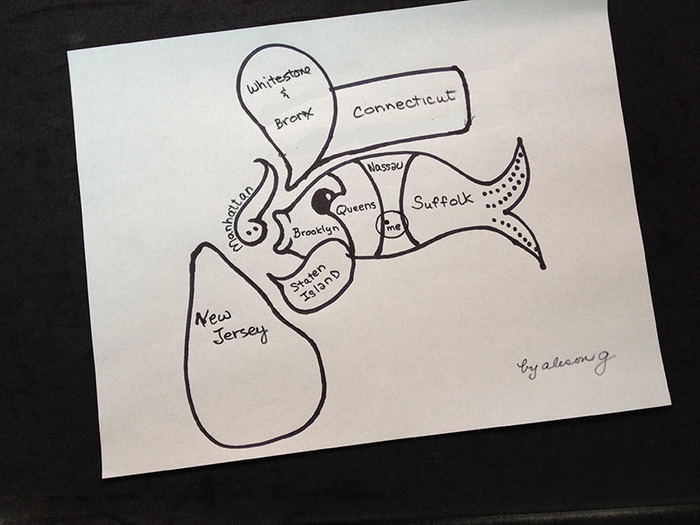 Whitestone
&
Bronx
Connecticut
Manhattan
Nassau
Queens
Suffolk
Brooklyn
me
Staten
Island
New
Jersey
by alison g